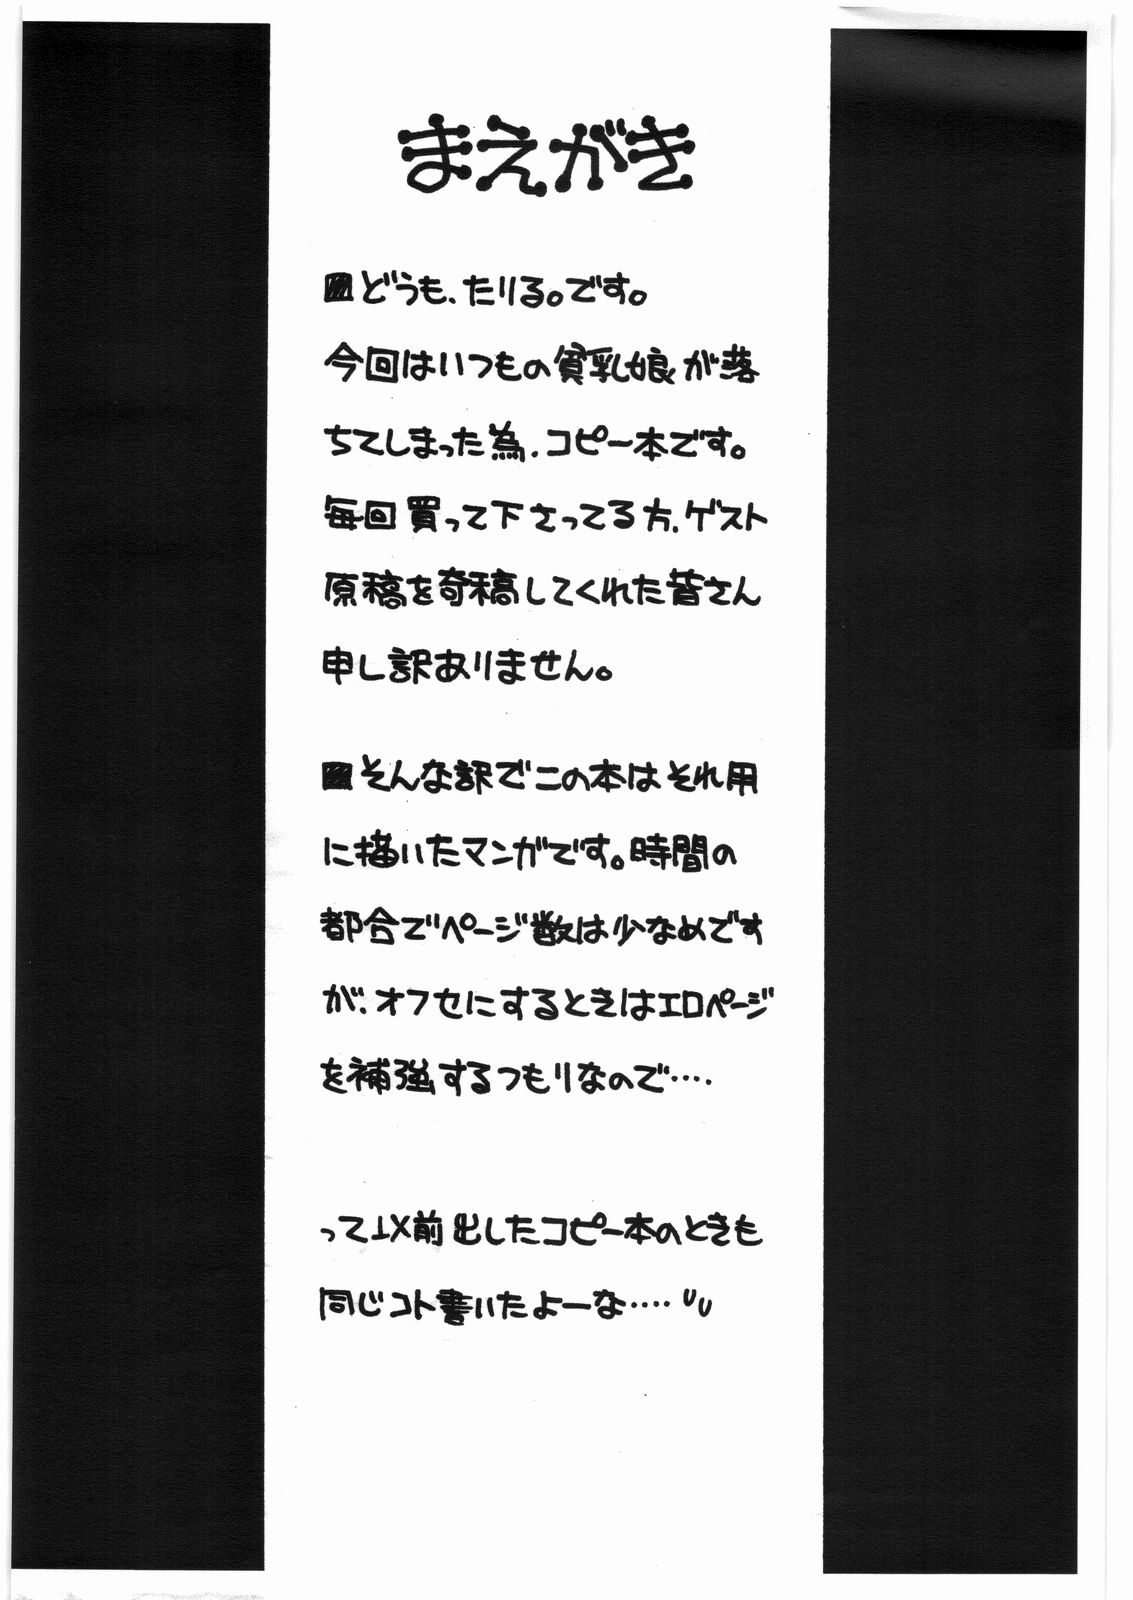 まえがき
▨どうも、たりる。です。
今回はいつもの貧乳娘が落
ちてしまった為、コピー本です。
毎回買って下さってる方、ゲスト
原稿を寄稿してくれた皆さん
申し訳ありません。
▨そんな訳でこの本はそれ用
に描いたマンガです。時間の
都合でページ数は少なめです
が、オフセにするときはエロページ
を補強するつもりなので‥‥
って以前出したコピー本のときも
同じコト書いたよーな‥‥